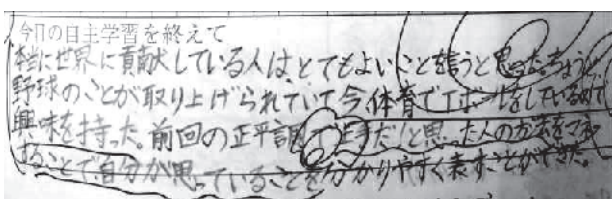 今日の自主学習を終えて
本当に世界に貢献している人は、とてもよいことを言うと思った。ちょうど
野球のことが取り上げられていて今、体育でTボールをしているので
興味を持った。前回の正平調で上手だ!と思った人の方法をマネ
することで、自分が思っていることを分かりやすく表すことができた。